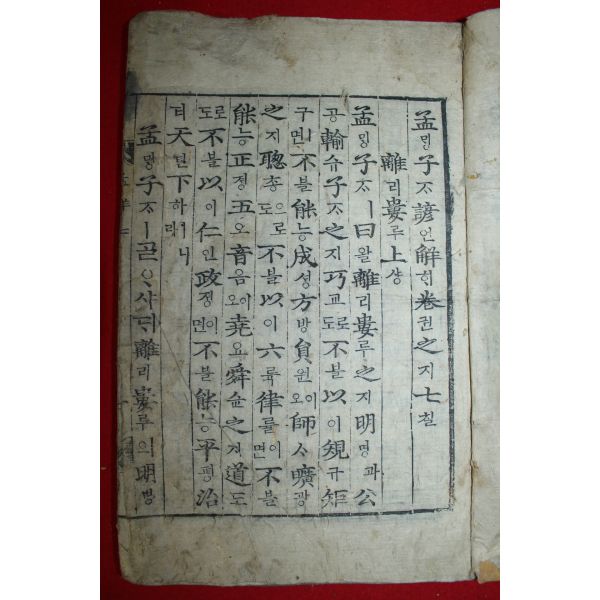 孟ᄆᆡᆼ子ᄌᆞ諺언解ᄒᆡ卷권之지七칠
離리婁루上샹
孟ᄆᆡᆼ子ᄌᆞㅣ曰왈離리婁루之지明명과公
공輸슈子ᄌᆞ之지巧교로도不불以이規규矩
구ㅣ면不불能능成셩方방員원이오師ᄉᆞ曠광
之지聰총으로도不불以이六륙律률이면不불
能능正졍五오音음이오堯요舜슌之지道도
로도不불以이仁인政졍이면不불能능平평治
티天텬下하ㅣ니라
孟ᄆᆡᆼ子ᄌᆞㅣᄀᆞᆯᄋᆞ샤ᄃᆡ離리婁루의明명